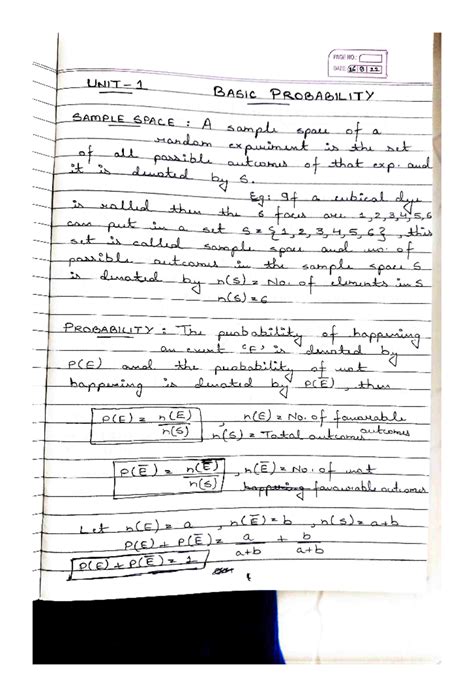 PAGE NO:
DATE: 16 8 22
UNIT-1 BASIC PROBABILITY
SAMPLE SPACE : A sample space of a
random experiment is the set
of all possible outcomes of that exp. and
it is denoted by S.
Eg: If a cubical dye
is rolled then the 6 faces are 1,2,3,4,5,6
can put in a set S = {1, 2, 3, 4, 5, 6} , this
set is called sample space and no. of
possible outcomes in the sample space S
is denoted by n(S) = No. of elements in S
n(S) = 6
PROBABILITY : The probability of happening
an event 'E' is denoted by
P(E) and the probability of not
happening is denoted by P(E̅) , then
P(E) = n(E)/n(S) , n(E) = No. of favourable outcomes
n(S) = Total outcomes
P(E̅) = n(E̅)/n(S) , n(E̅) = No. of not
happening favourable outcomes
Let n(E) = a , n(E̅) = b , n(S) = a+b
P(E) + P(E̅) = a/a+b + b/a+b
P(E) + P(E̅) = 1